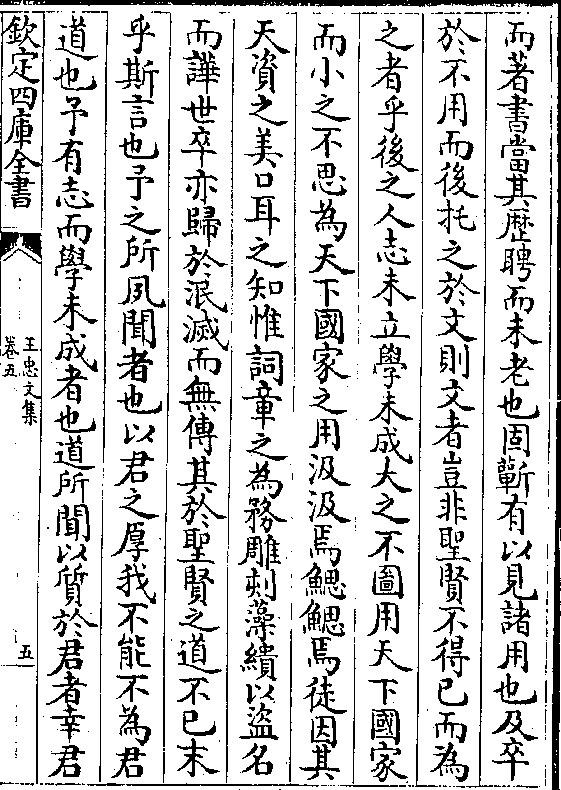 而著書當其歷聘而未老也固蘄有以見諸用也及卒
於不用而後托之於文則文者豈非聖賢不得已而為
之者乎後之人志未立學未成大之不圖用天下國家
而小之不思為天下國家之用汲汲焉鰓鰓焉徒因其
天資之美口耳之知惟詞章之為務雕刻藻繢以盜名
而譁世卒亦歸於泯滅而無傳其於聖賢之道不已末
乎斯言也予之所夙聞者也以君之厚我不能不為君
道也予有志而學未成者也道所聞以質於君者幸君
欽定四庫全書
王忠文集
卷五
五